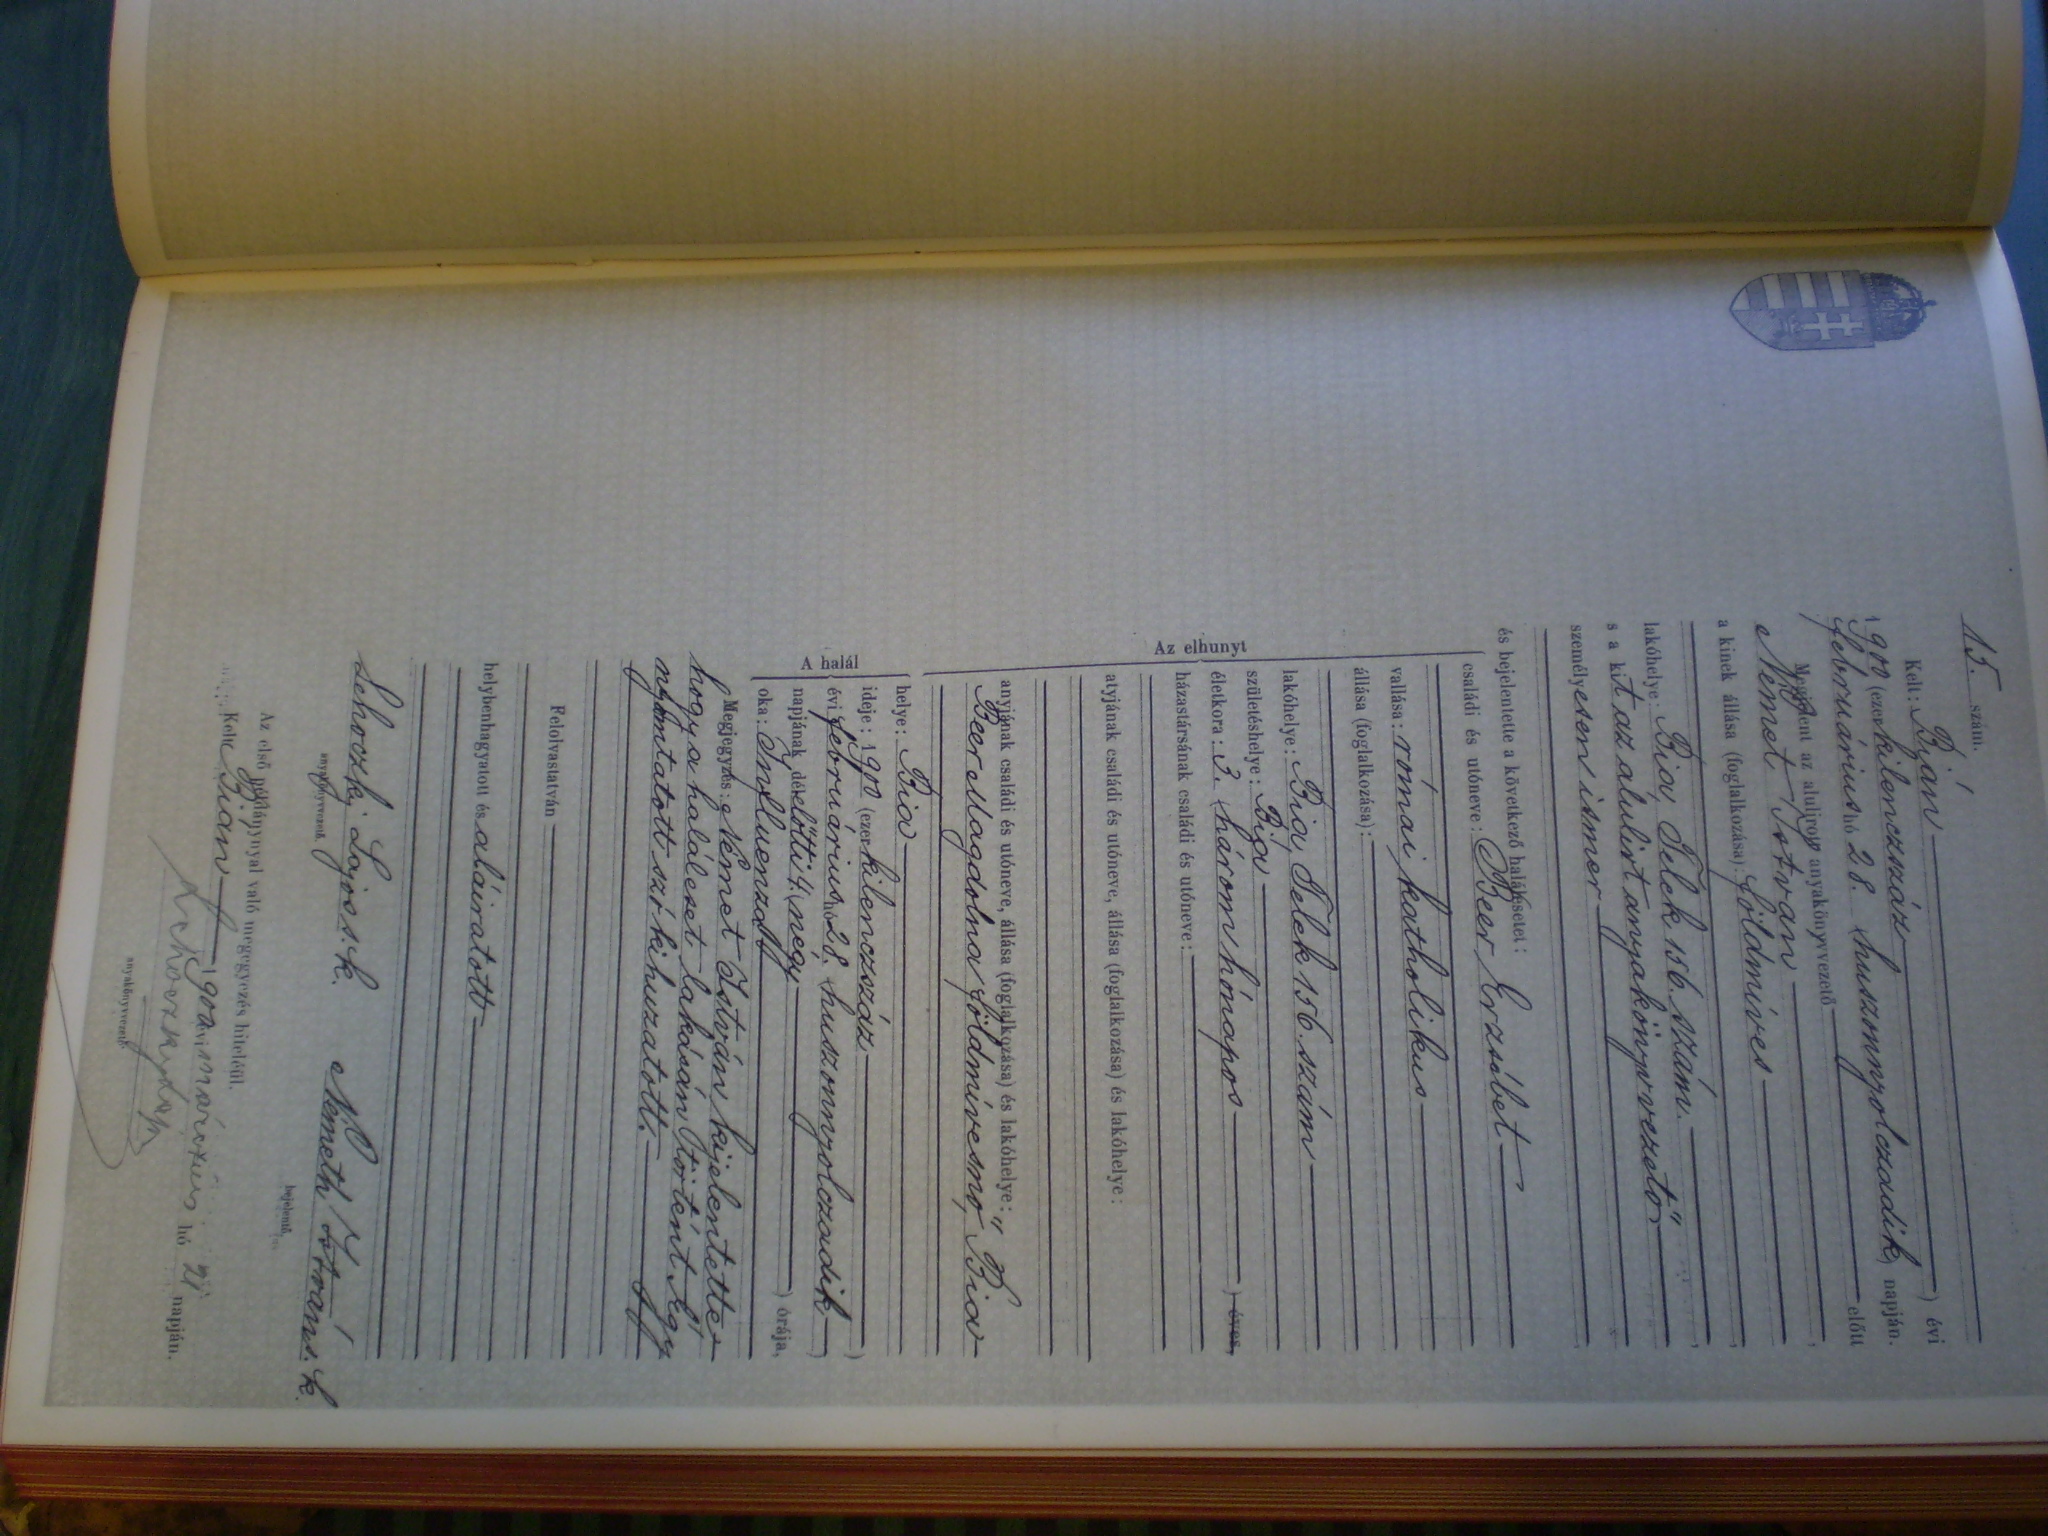 15. szám.
Kelt: Bián
1900 (ezerkilenczszáz) évi
februárius hó 28. (huszonnyolczadik) napján.
Megjelent az alulirott anyakönyvvezető előtt
Német István,
a kinek állása (foglalkozása): földmíves,
lakóhelye: Bia, Telek 156. szám.,
s a kit az alulirt anyakönyvvezető
személyesen ismer
és bejelentette a következő halálesetet:
Az elhunyt
családi és utóneve: Beer Erzsébet
vallása: római katholikus
állása (foglalkozása):
lakóhelye: Bia Telek 156. szám
születéshelye: Bia
életkora: 3. (három hónapos) éves,
házastársának családi és utóneve:
atyjának családi és utóneve, állása (foglalkozása) és lakóhelye:
anyjának családi és utóneve, állása (foglalkozása) és lakóhelye:
Beer Magdolna földmívesnő, Bia
A halál
helye: Bia
ideje: 1900 (ezerkilenczszáz)
évi februárius hó 28. (huszonnyolczadik)
napjának délelőtti 4. (négy) órája,
oka: Influenza
Megjegyzés: Német István kijelentette
hogy a haláleset lakásán történt. Egy
nyomtatott szó kihuzatott.
Felolvastatván
helybenhagyatott és aláiratott
Schoczki Lajos s. k. Németh István s. k.
anyakönyvvezető. bejelentő.
Az első példánynyal való megegyezés hiteléül.
Kelt Bian 1900 évi márczius hó 21 napján.
anyakönyvvezető.